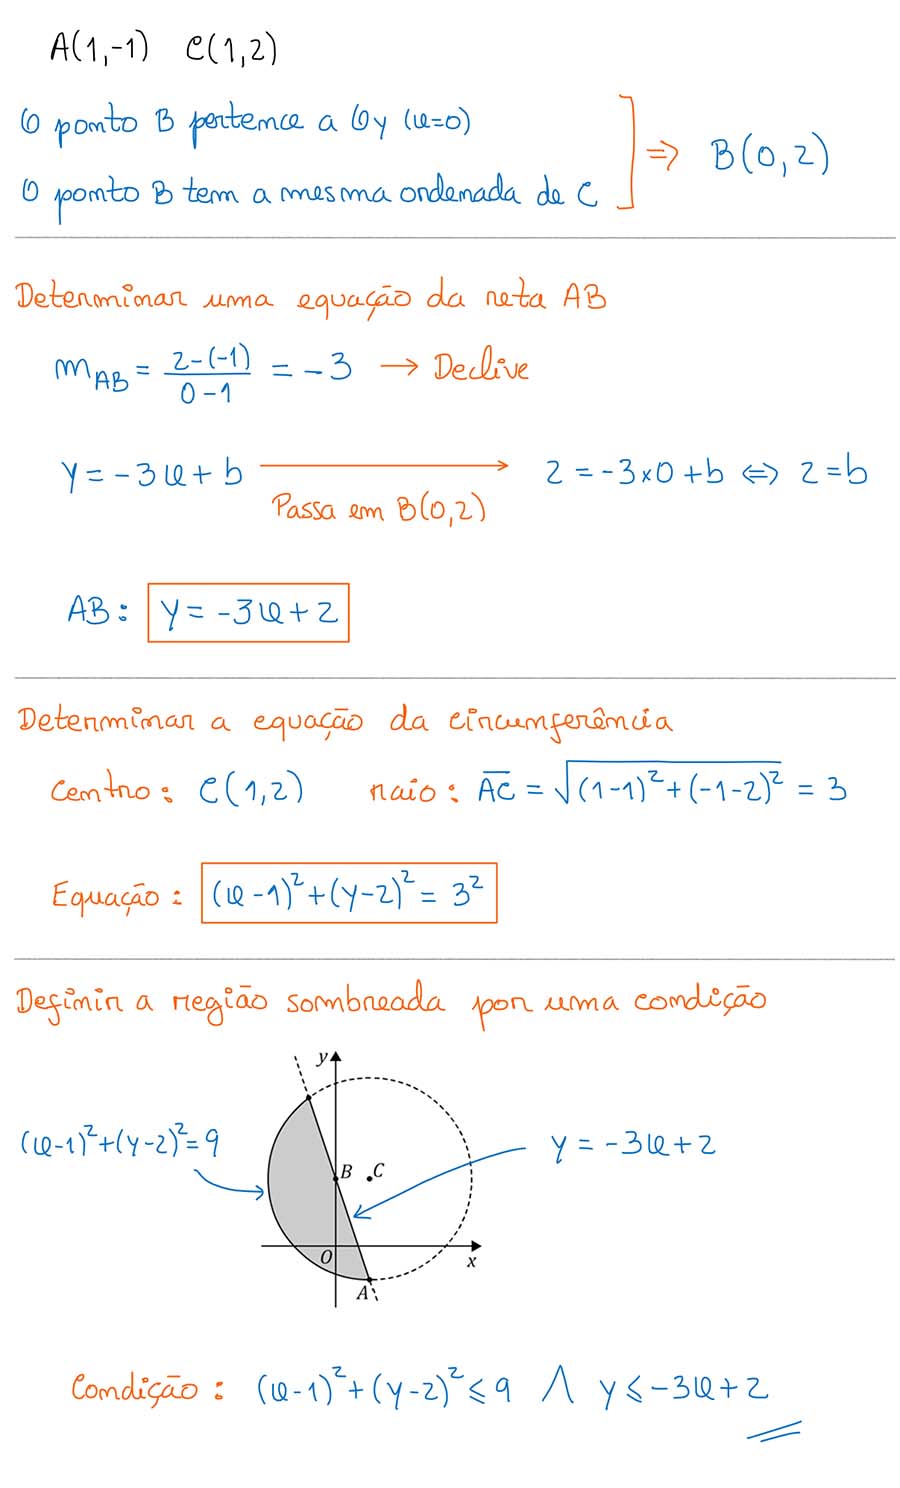 A(1,-1) C(1,2)
O ponto B pertence a Oy (x=0)
O ponto B tem a mesma ordenada de C
⇒ B(0,2)
Determinar uma equação da reta AB
m_AB = (2-(-1))/(0-1) = -3 → Declive
y = -3x + b → Passa em B(0,2) 2 = -3×0 + b ⇔ 2 = b
AB: y = -3x + 2
Determinar a equação da circunferência
Centro: C(1,2) raio: A̅C̅ = √((1-1)²+(-1-2)²) = 3
Equação: (x-1)²+(y-2)² = 3²
Definir a região sombreada por uma condição
y
(x-1)²+(y-2)²=9
y = -3x+2
B C
O
x
A
Condição: (x-1)²+(y-2)² ⩽ 9 ∧ y ⩽ -3x+2